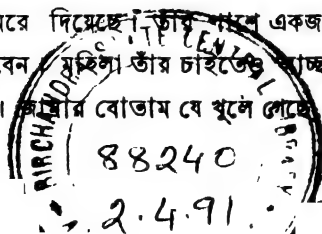 মরে দিয়েছে। তাঁর পাশে একজ
বেন। মহিলা তাঁর চাইতেও
। জামার বোতাম যে খুলে গেছে
BIRCHANDRA STATE CENTRAL LIBRARY
88240
2.4.91.